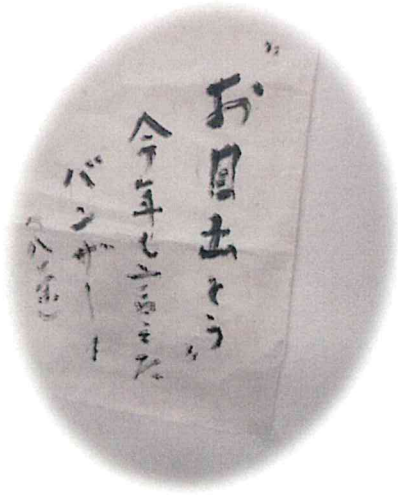 〝お目出とう〟
今年も言えた
バンザーイ